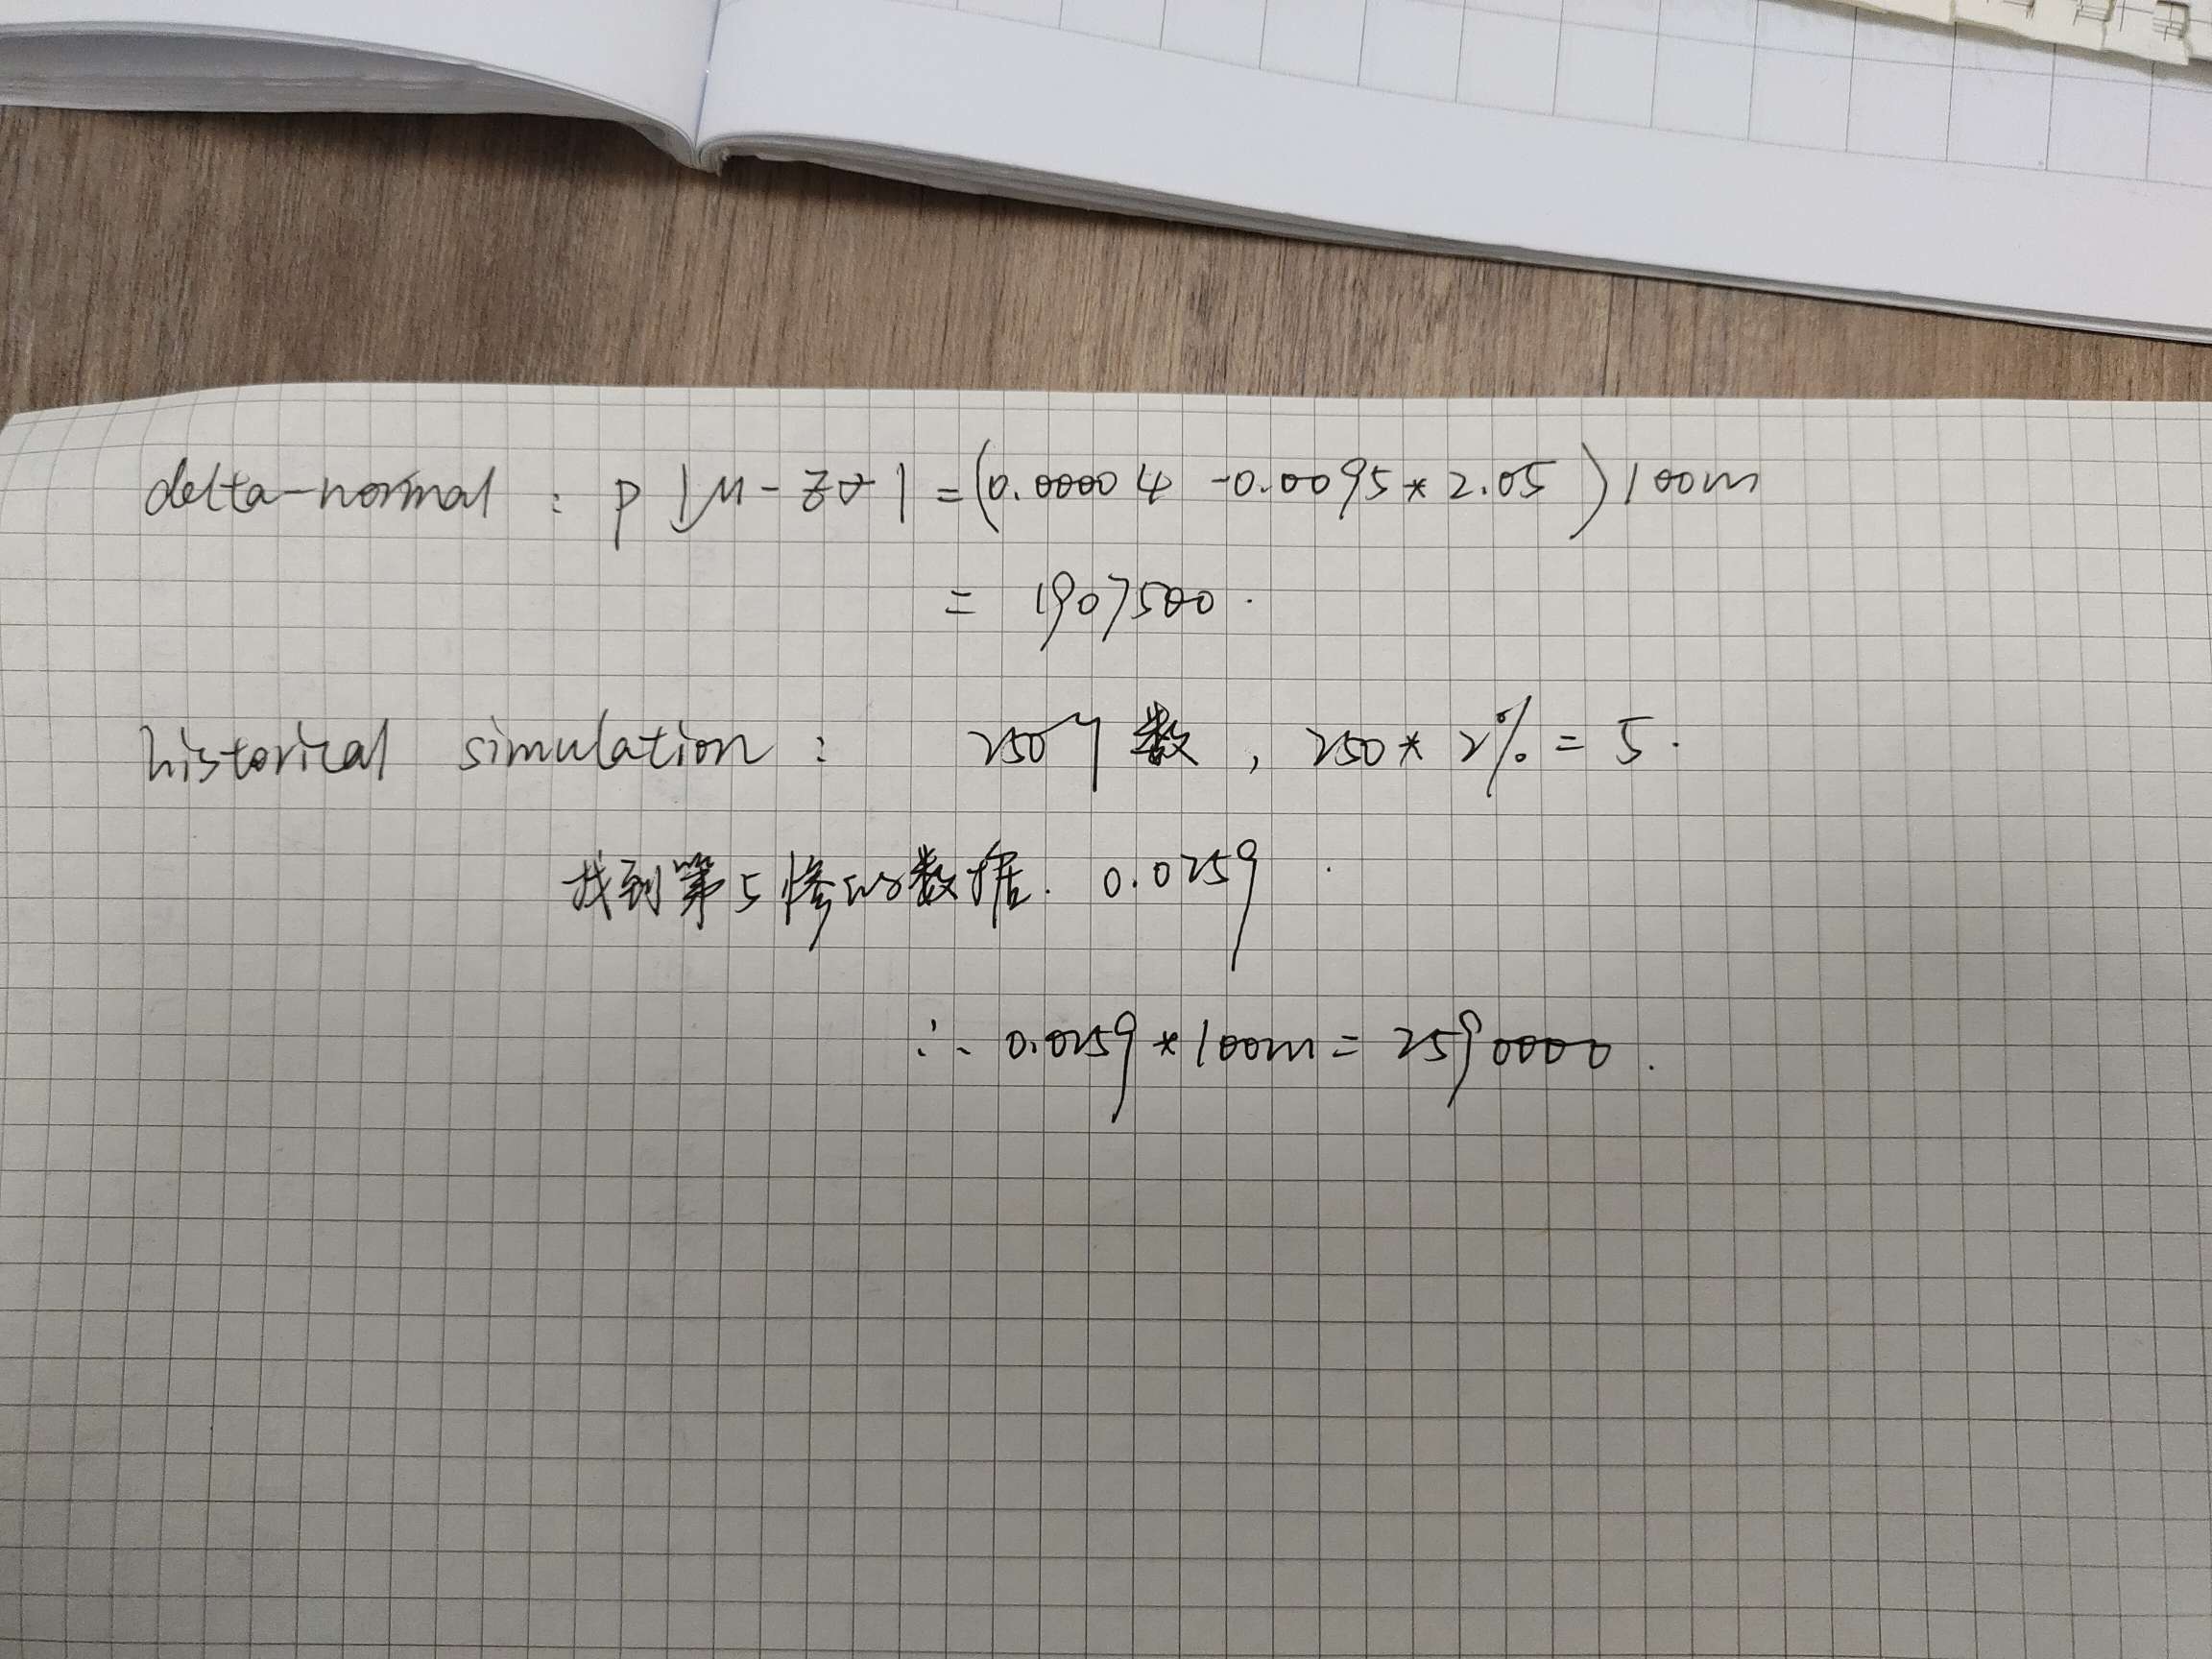 delta-normal : P |μ - zσ| = (0.00004 -0.0095*2.05) 100m
= 1907500.
historical simulation : 250个数, 250*2% = 5.
找到第5惨的数据. 0.0259
∴ 0.0259*100m = 2590000.